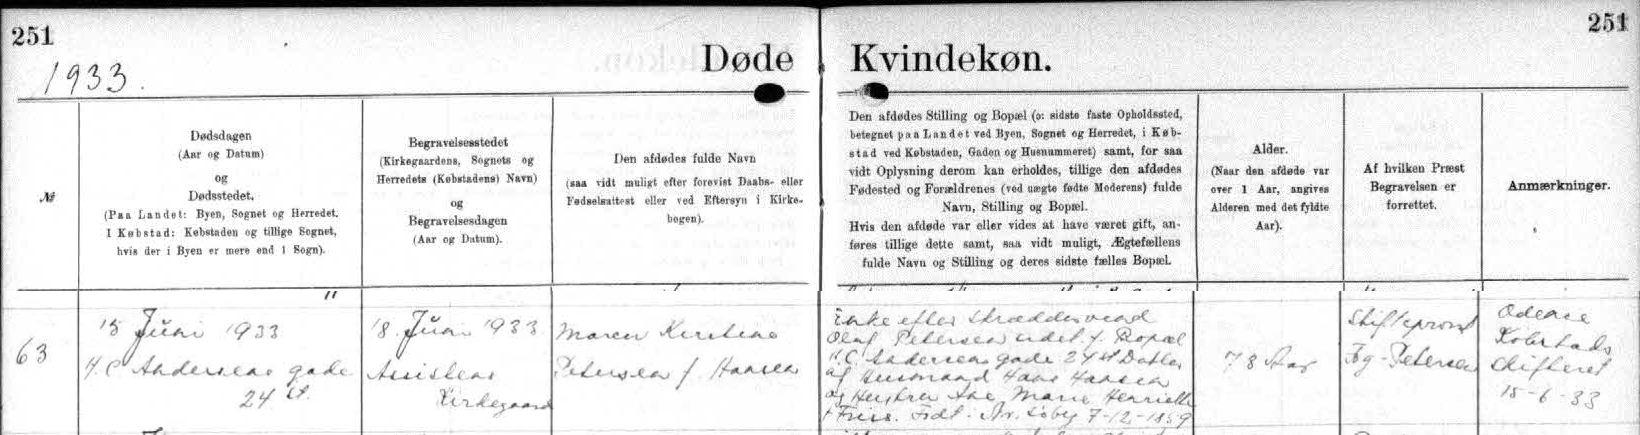 251
251
1933.
Døde
Kvindekøn.
№
Dødsdagen
(Aar og Datum)
og
Dødsstedet,
(Paa Landet: Byen, Sognet og Herredet.
I Købstad: Købstaden og tillige Sognet,
hvis der i Byen er mere end 1 Sogn).
Begravelsesstedet
(Kirkegaardens, Sognets og
Herredets (Købstadens) Navn)
og
Begravelsesdagen
(Aar og Datum).
Den afdødes fulde Navn
(saa vidt muligt efter forevist Daabs- eller
Fødselsattest eller ved Eftersyn i Kirke-
bogen).
Den afdødes Stilling og Bopæl (ɔ: sidste faste Opholdssted,
betegnet paa Landet ved Byen, Sognet og Herredet, i Køb-
stad ved Købstaden, Gaden og Husnummeret) samt, for saa
vidt Oplysning derom kan erholdes, tillige den afdødes
Fødested og Forældrenes (ved uægte fødte Moderens) fulde
Navn, Stilling og Bopæl.
Hvis den afdøde var eller vides at have været gift, an-
føres tillige dette samt, saa vidt muligt, Ægtefællens
fulde Navn og Stilling og deres sidste fælles Bopæl.
Alder.
(Naar den afdøde var
over 1 Aar, angives
Alderen med det fyldte
Aar).
Af hvilken Præst
Begravelsen er
forrettet.
Anmærkninger.
63
15 Juni 1933
H.C Andersens gade
24 st.
18. Juni 1933.
Assistens
Kirkegaard
Maren Kirstine
Petersen f. Hansen
Enke efter Skræddersvend
Oluf Petersen sidst f. Bopæl
H.C. Andersens gade 24 st Datter
af Husmand Hans Hansen
og Hustru Ane Marie Henriette
f Friis. Født. Nr. Søby 7-12-1859
73 Aar
Stiftsprovst
Fog-Petersen
Odense
Købstads
Skifteret
15-6-33